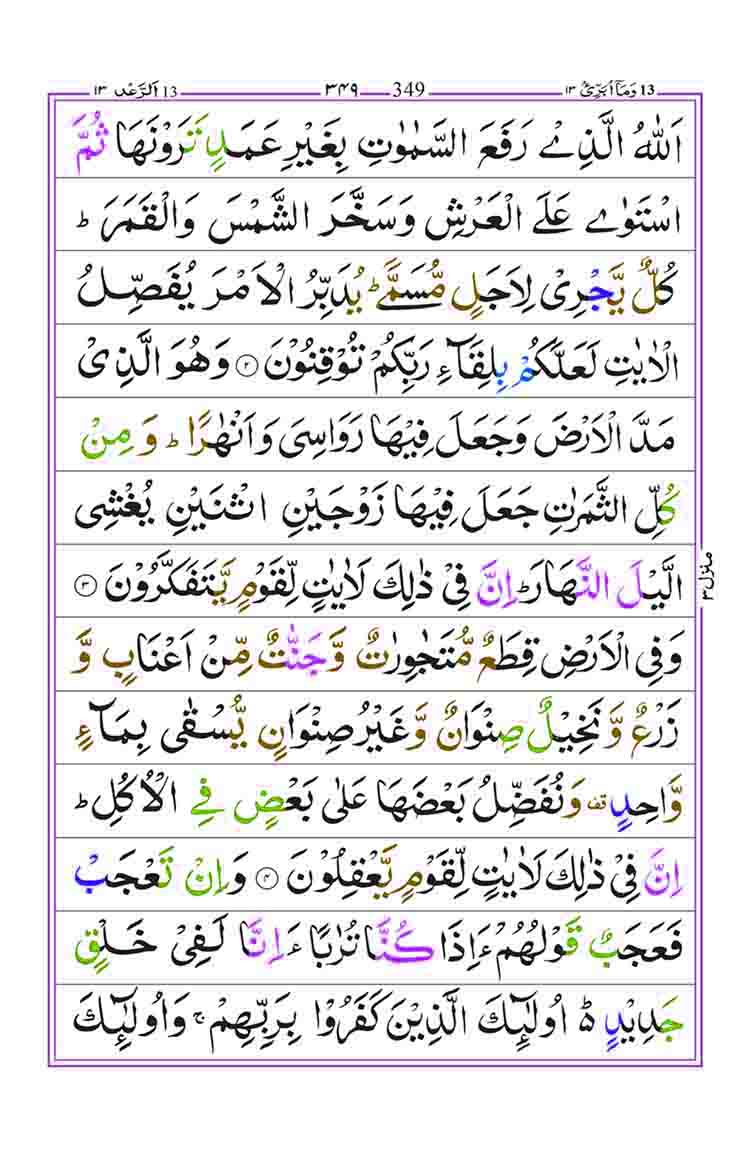 13 وَمَآ اُبَرِّئُ ١٣ 349 ٣٤٩ 13 اَلرَّعْد ١٣
اَللّٰهُ الَّذِىْ رَفَعَ السَّمٰوٰتِ بِغَيْرِ عَمَدٍ تَرَوْنَهَا ثُمَّ
اسْتَوٰى عَلَى الْعَرْشِ وَسَخَّرَ الشَّمْسَ وَالْقَمَرَ ؕ
كُلٌّ يَّجْرِىْ لِاَجَلٍ مُّسَمًّىؕ يُدَبِّرُ الْاَمْرَ يُفَصِّلُ
الْاٰيٰتِ لَعَلَّكُمْ بِلِقَآءِ رَبِّكُمْ تُوْقِنُوْنَ ﴿۲﴾ وَهُوَ الَّذِىْ
مَدَّ الْاَرْضَ وَجَعَلَ فِيْهَا رَوَاسِىَ وَاَنْهٰرًاؕ وَ مِنْ
كُلِّ الثَّمَرٰتِ جَعَلَ فِيْهَا زَوْجَيْنِ اثْنَيْنِ يُغْشِى
الَّيْلَ النَّهَارَؕ اِنَّ فِىْ ذٰلِكَ لَاٰيٰتٍ لِّقَوْمٍ يَّتَفَكَّرُوْنَ ﴿۳﴾
وَفِى الْاَرْضِ قِطَعٌ مُّتَجٰوِرٰتٌ وَّجَنّٰتٌ مِّنْ اَعْنَابٍ وَّ
زَرْعٌ وَّنَخِيْلٌ صِنْوَانٌ وَّغَيْرُ صِنْوَانٍ يُّسْقٰى بِمَآءٍ
وَّاحِدٍ قف وَنُفَضِّلُ بَعْضَهَا عَلٰى بَعْضٍ فِى الْاُكُلِ ؕ
اِنَّ فِىْ ذٰلِكَ لَاٰيٰتٍ لِّقَوْمٍ يَّعْقِلُوْنَ ﴿۴﴾ وَاِنْ تَعْجَبْ
فَعَجَبٌ قَوْلُهُمْ ءَاِذَا كُنَّا تُرٰبًا ءَاِنَّا لَفِىْ خَلْقٍ
جَدِيْدٍ ؕ اُولٰٓئِكَ الَّذِيْنَ كَفَرُوْا بِرَبِّهِمْ ۚ وَاُولٰٓئِكَ
منزل ٣